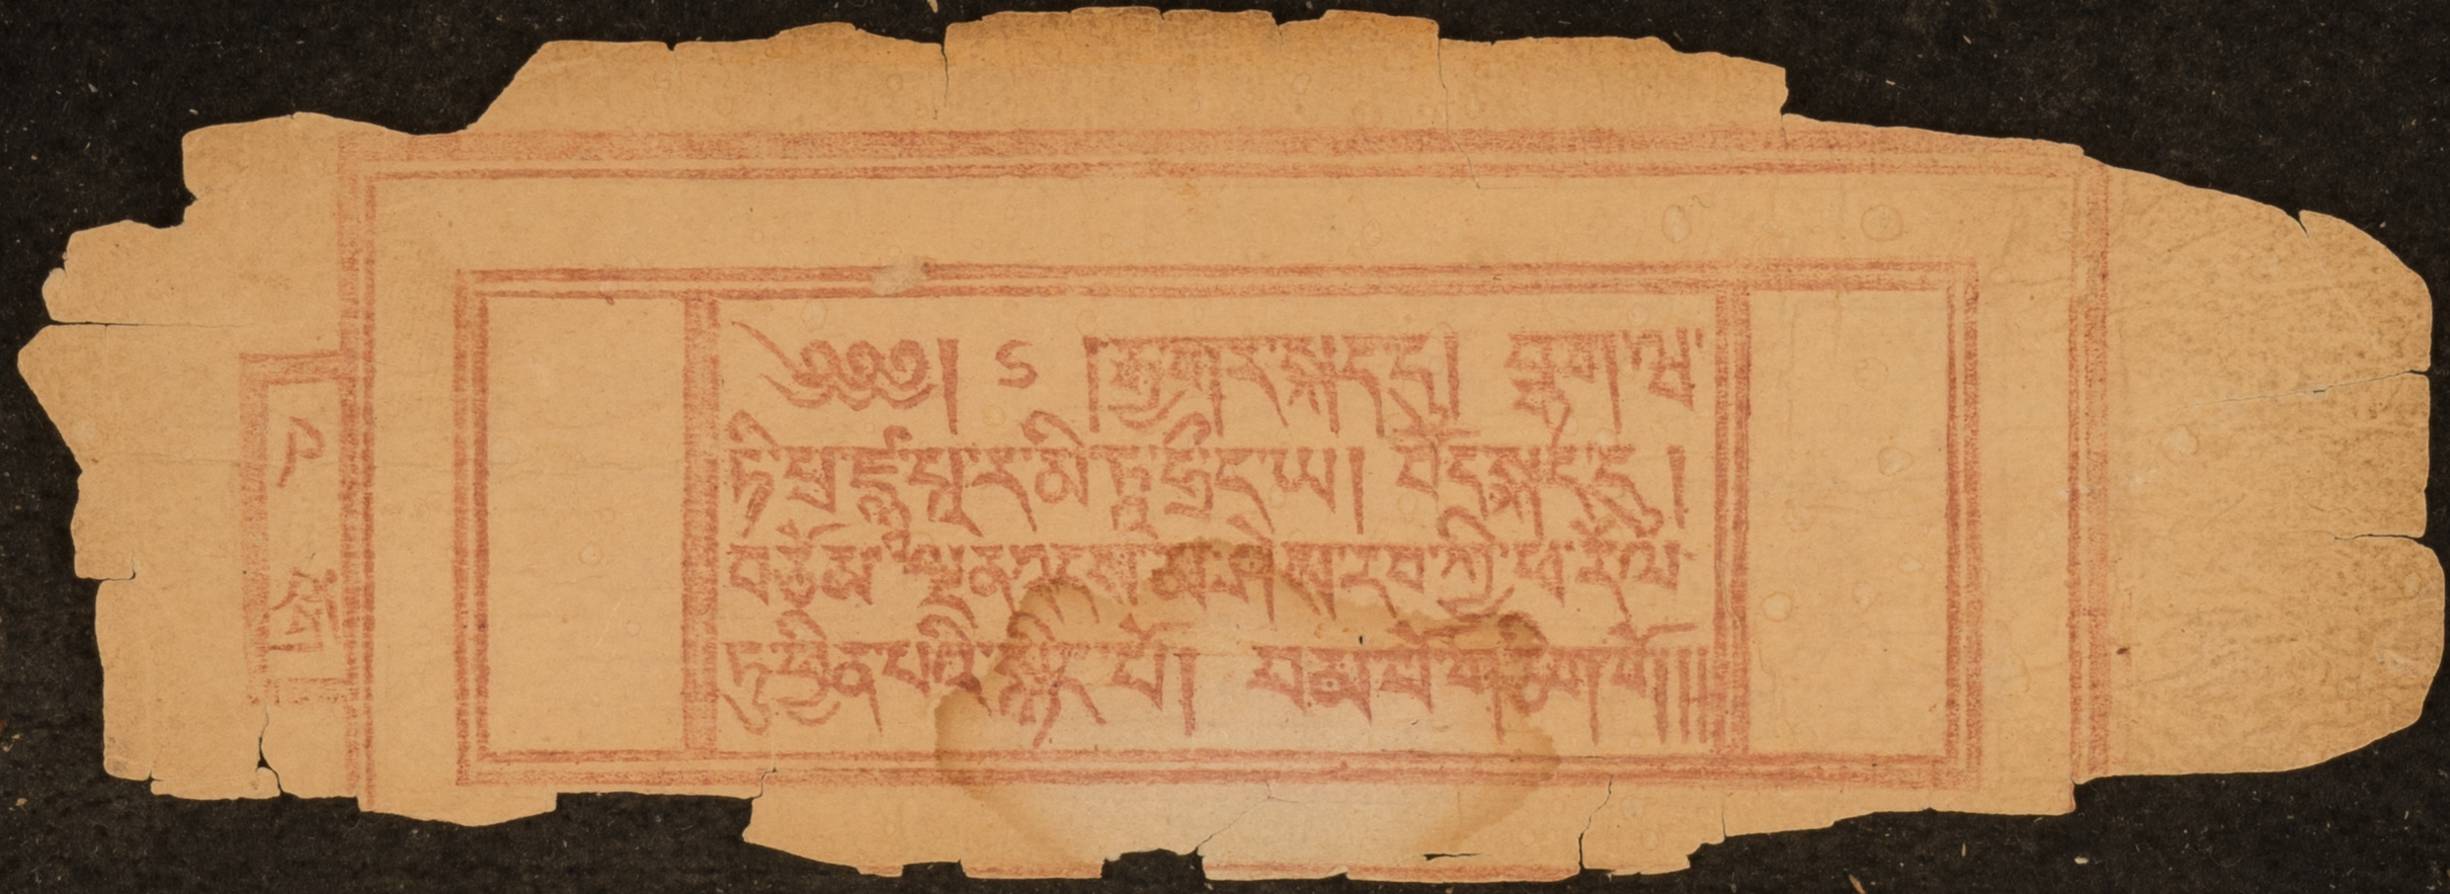 ༄༅༅། །རྒྱ་གར་སྐད་དུ། བྷ་ག་ཝ་
ཏི་པྲ་ཛྙཱ་པཱ་ར་མི་ཏཱ་ཧྲི་ད་ཡ། བོད་སྐད་དུ།
བཅོམ་ལྡན་འདས་མ་ཤེས་རབ་ཀྱི་ཕ་རོལ་
ཏུ་ཕྱིན་པའི་སྙིང་པོ། བམ་པོ་གཅིག་གོ།།